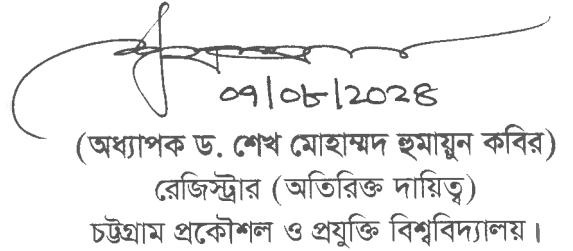 ০৭/০৮/২০২৪
(অধ্যাপক ড. শেখ মোহাম্মদ হুমায়ুন কবির)
রেজিস্ট্রার (অতিরিক্ত দায়িত্ব)
চট্টগ্রাম প্রকৌশল ও প্রযুক্তি বিশ্ববিদ্যালয়।